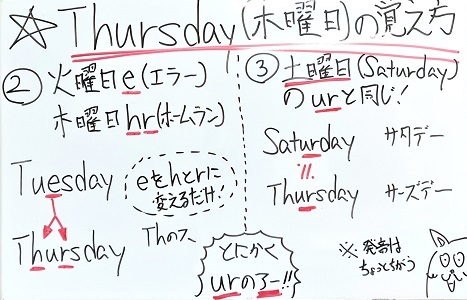 ☆Thursday(木曜日)の覚え方
② 火曜日e(エラー)
木曜日hr(ホームラン)
Tuesday
Thursday
eをhとrに
変えるだけ!
Thのフ、
③ 土曜日(Saturday)
のurと同じ!
Saturday サタデー
Thursday サーズデー
とにかく
urのろー!!
※ 発音は
ちょっとちがう